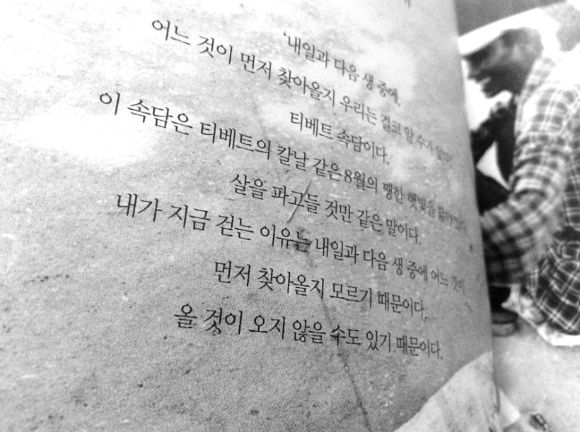 '내일과 다음 생 중에,
어느 것이 먼저 찾아올지 우리는 결코 알 수가 없다'
티베트 속담이다.
이 속담은 티베트의 칼날 같은 8월의 쨍한 햇빛을
살을 파고들 것만 같은 말이다.
내가 지금 걷는 이유는 내일과 다음 생 중에 어느 것이
먼저 찾아올지 모르기 때문이다.
올 것이 오지 않을 수도 있기 때문이다.